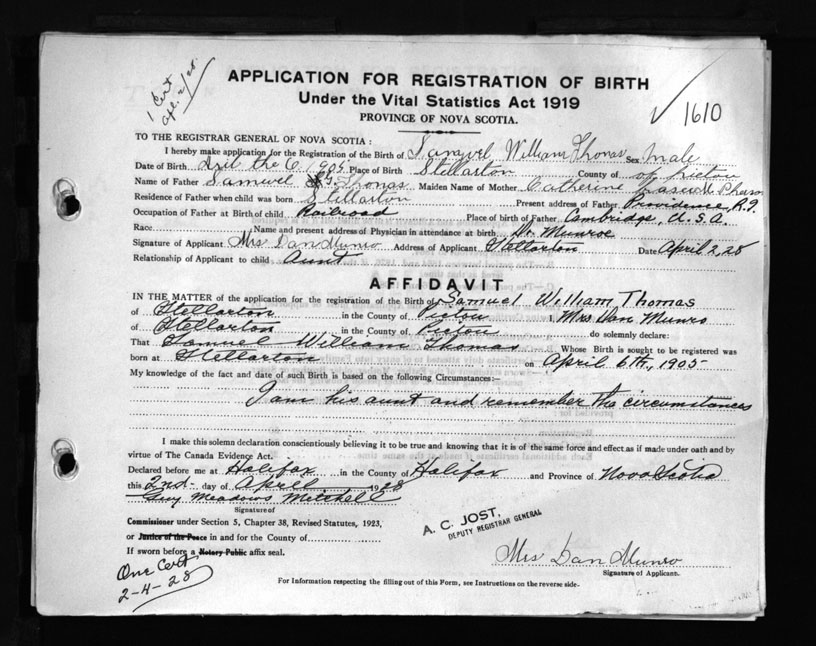 1 Cert
Apl. 2/28.
APPLICATION FOR REGISTRATION OF BIRTH
Under the Vital Statistics Act 1919
PROVINCE OF NOVA SCOTIA.
1610
TO THE REGISTRAR GENERAL OF NOVA SCOTIA:
I hereby make application for the Registration of the Birth of Samuel William Thomas Sex Male
Date of Birth the 6 1905 Place of Birth Stellarton County of of Pictou
Name of Father Samuel Thomas Maiden Name of Mother Catherine
Residence of Father when child was born Stellarton Present address of Father Providence, R.I.
Occupation of Father at Birth of child Railroad Place of birth of Father Cambridge, U.S.A.
Race Name and present address of Physician in attendance at birth Dr. Munroe
Signature of Applicant Mrs Dan Munro Address of Applicant Stellarton Date April 2, 28
Relationship of Applicant to child Aunt
AFFIDAVIT
IN THE MATTER of the application for the registration of the Birth of Samuel William Thomas
of Stellarton in the County of Pictou I, Mrs Dan Munro
of Stellarton in the County of Pictou do solemnly declare:
That Samuel William Thomas Whose Birth is sought to be registered was
born at Stellarton on April 6th, 1905
My knowledge of the fact and date of such Birth is based on the following Circumstances:—
I am his aunt and remember the circumstances
I make this solemn declaration conscientiously believing it to be true and knowing that it is of the same force and effect as if made under oath and by
virtue of The Canada Evidence Act.
Declared before me at Halifax in the County of Halifax and Province of Nova Scotia
this 2nd day of April 1928
Guy Meadows Mitchell
Signature of
Commissioner under Section 5, Chapter 38, Revised Statutes, 1923,
or Justice of the Peace in and for the County of
If sworn before a Notary Public affix seal.
A. C. JOST,
DEPUTY REGISTRAR GENERAL
Mrs Dan Munro
Signature of Applicant.
One Cert
2-4-28
For Information respecting the filling out of this Form, see Instructions on the reverse side.